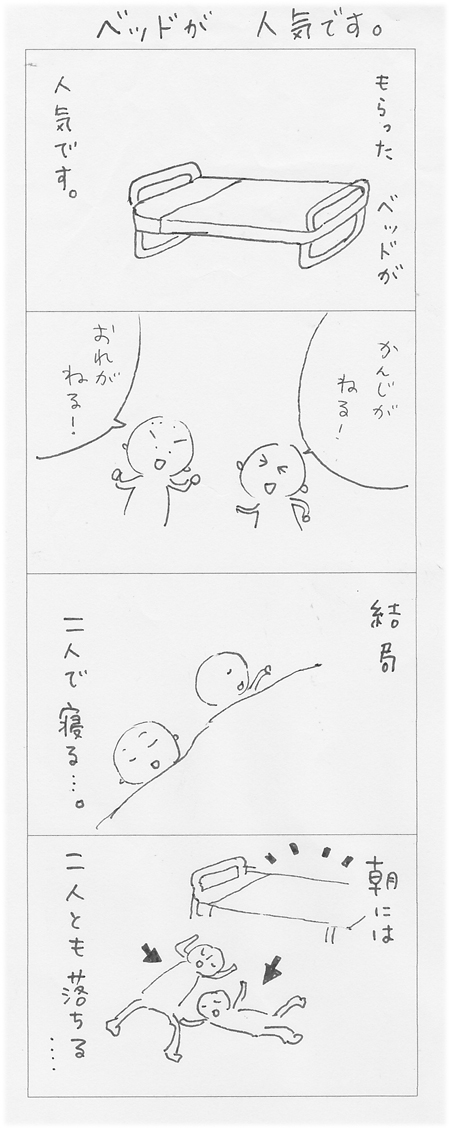 ベッドが 人気です。
もらった
ベッドが
人気です。
かんじが
ねる!
おれが
ねる!
結局
二人で寝る…。
朝には
二人とも落ちる……